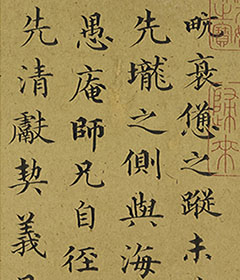 畝衰憊之蹤未
先壠之側與海
愚庵師兄自徑
先清獻契義
歸來